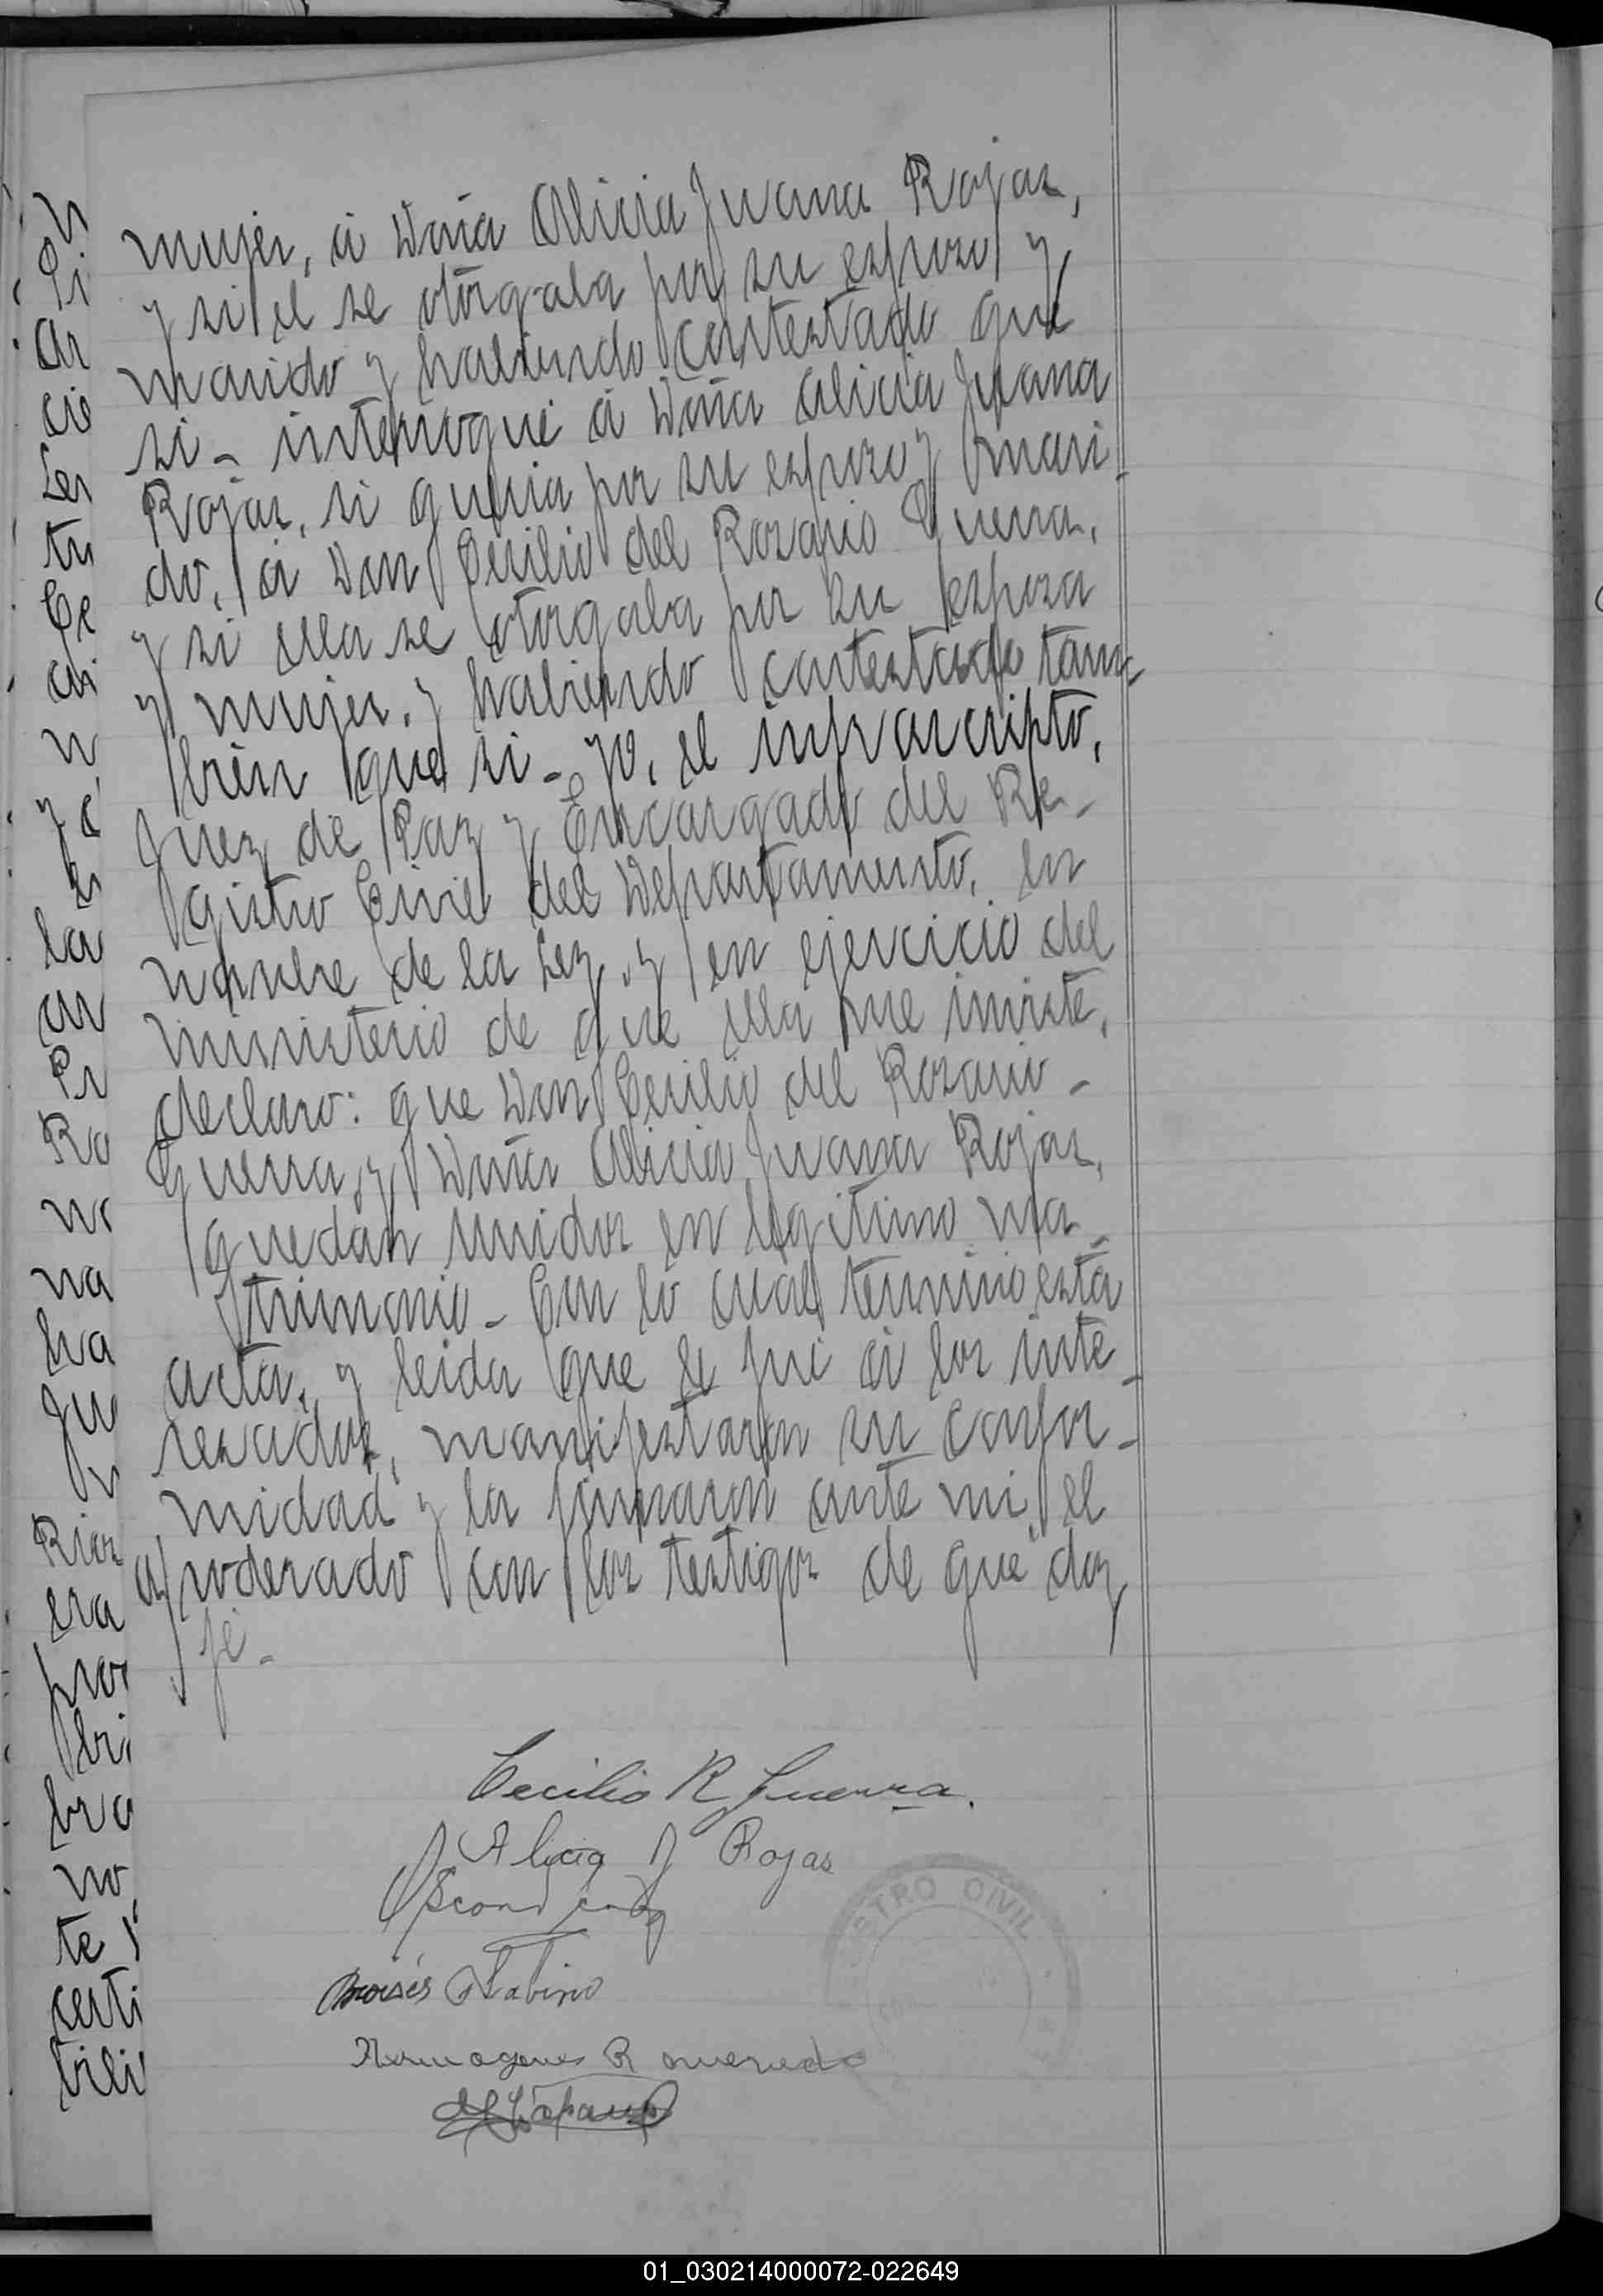 mujer, á Doña Alicia Juana Rojas,
y si el se otorgaba por su esposo y
marido y habiendo contestado que
si - interrogué á Doña Alicia Juana
Rojas, si queria por su esposo y mari-
do, á Don Cecilio del Rosario Guerra,
y si ella se otorgaba por su esposa
y mujer, y habiendo contestado tam-
bién que si - yo, el infrascripto,
Juez de Paz y Encargado del Re-
gistro Civil del Departamento, en
nombre de la Ley, y en ejercicio del
ministerio de que ella me inviste,
declaro: que Don Cecilio del Rosario -
Guerra, y Doña Alicia Juana Rojas,
quedan unidos en legitimo ma-
trimonio - Con lo cual termino esta
acta, y leida que le fué á los inte-
resados, manifestaron su confor-
midad y la firmaron ante mi, el
apoderado con los testigos de que doy
fé -
Cecilio R Guerra.
Alicia J Rojas
Moisés
Hermogenes R
STRO CIVIL
01_030214000072-022649